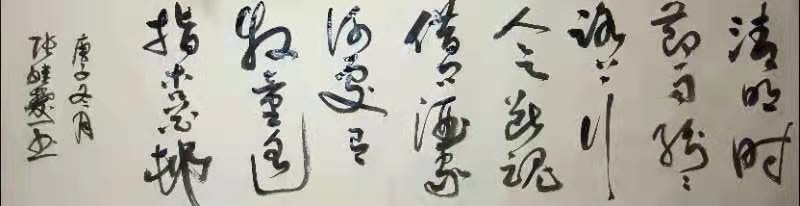 清明时
节雨纷々
路上行
人断魂
借问酒家
何處有
牧童遥
指杏花村
庚子冬月
张书